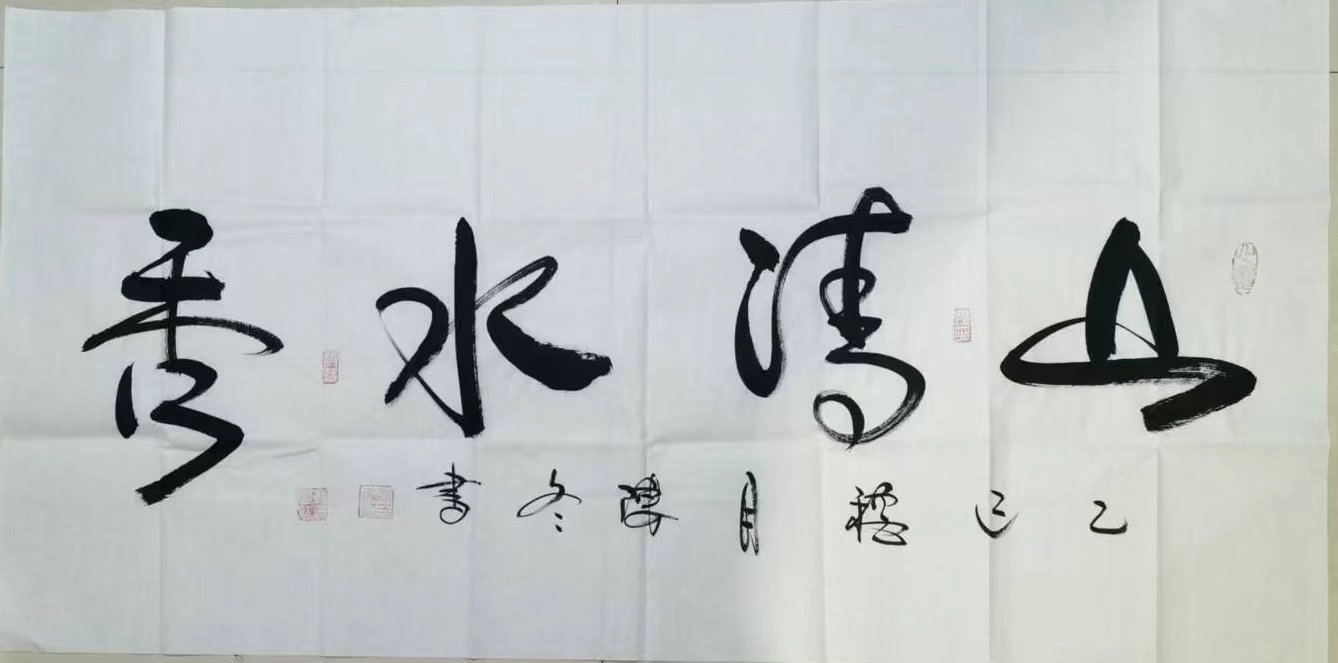 山清水秀
乙巳月陳冬書